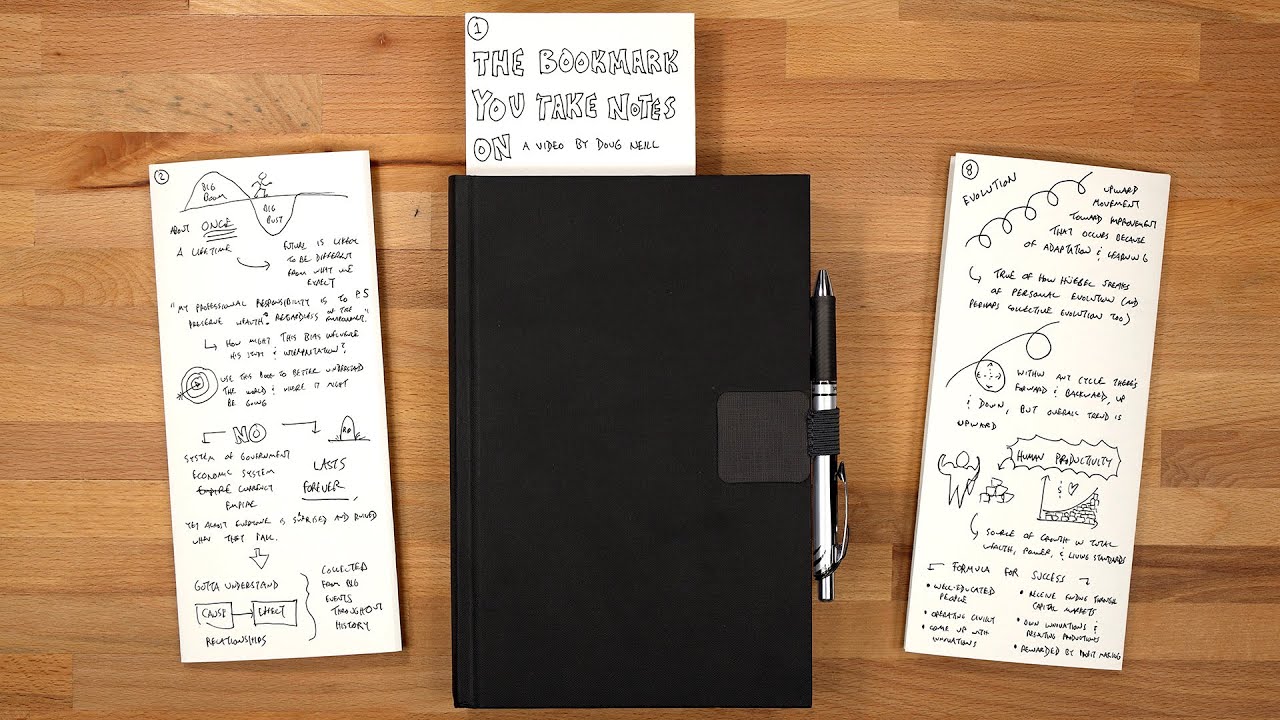 1
THE BOOKMARK
YOU TAKE NOTES
ON A VIDEO BY DOUG NEILL
2
BIG
BOOM
BIG
BUST
ABOUT ONCE
A LIFETIME
FUTURE IS LIKELY
TO BE DIFFERENT
FROM WHAT WE
EXPECT
"MY PROFESSIONAL RESPONSIBILITY IS TO
PRESERVE WEALTH. REGARDLESS OF THE
ENVIRONMENT."
HOW MIGHT THIS BIAS INFLUENCE
HIS STUDY & INTERPRETATION?
USE THIS BOOK TO BETTER UNDERSTAND
THE WORLD & WHERE IT MIGHT
BE GOING
NO
SYSTEM OF GOVERNMENT
ECONOMIC SYSTEM
EMPIRE CURRENCY
EMPIRE
LASTS
FOREVER
YET ALMOST EVERYONE IS SURPRISED AND RUINED
WHEN THEY FALL.
GOTTA UNDERSTAND
CAUSE EFFECT
RELATIONSHIPS
COLLECTED
FROM BIG
EVENTS
THROUGHOUT
HISTORY
8
EVOLUTION
UPWARD
MOVEMENT
TOWARD IMPROVEMENT
THAT OCCURS BECAUSE
OF ADAPTATION & LEARNING
TRUE OF HOW HÜEBEL SPEAKS
OF PERSONAL EVOLUTION (AND
PERHAPS COLLECTIVE EVOLUTION TOO)
WITHIN ANY CYCLE THERE'S
FORWARD & BACKWARD, UP
& DOWN, BUT OVERALL TREND IS
UPWARD
HUMAN PRODUCTIVITY
&
SOURCE OF GROWTH IN TOTAL
WEALTH, POWER, & LIVING STANDARDS
FORMULA FOR SUCCESS
• WELL-EDUCATED
PEOPLE
• OPERATING CIVILLY
• COME UP WITH
INNOVATIONS
• RECEIVE FUNDING THROUGH
CAPITAL MARKETS
• OWN INNOVATIONS &
RESULTING PRODUCTIONS
• REWARDED BY PROFIT MAKING